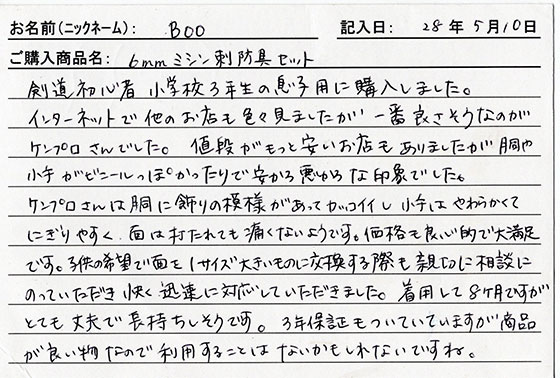 お名前(ニックネーム): BOO 記入日: 28年5月10日
ご購入商品名: 6mmミシン刺防具セット
剣道初心者 小学校3年生の息子用に購入しました。
インターネットで他のお店も色々見ましたが 一番良さそうなのが
ケンプロさんでした。 値段がもっと安いお店もありましたが胴や
小手がビニールっぽかったりで安かろ悪かろな印象でした。
ケンプロさんは胴に飾りの模様があってカッコイイし 小手はやわらかくて
にぎりやすく、面は打たれても痛くないようです。価格も良心的で大満足
です。子供の希望で面を1サイズ大きいものに交換する際も親切に相談に
のっていただき 快く迅速に対応していただきました。 着用して8ヶ月ですが
とても丈夫で長持ちしそうです。 3年保証もついていますが商品
が良い物なので利用することはないかもしれないですね。